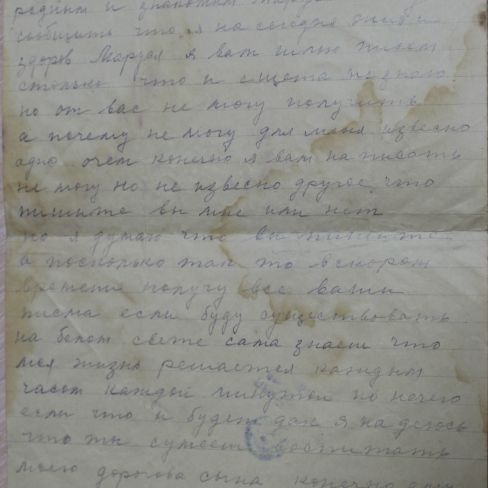 родным и знакомым
сообщить что я на сегодня жив и
здоров Маруся я вам шлю писем
столько что и сщота не знаю
но от вас не могу получить
а почему не могу для меня извесно
одно очем конечно я вам написать
не могу но не извесно другое что
пишите вы мне или нет
но я думаю что вы пишите
а посколько так то вскором
времени получу все ваши
писма если буду существовать
на белом свете сама знаеш что
моя жизнь решается каждым
часом каждой минутой но нечего
если что и будет дак я на деюсь
что ты сумееш воспитать
моего дорогова сына конечно